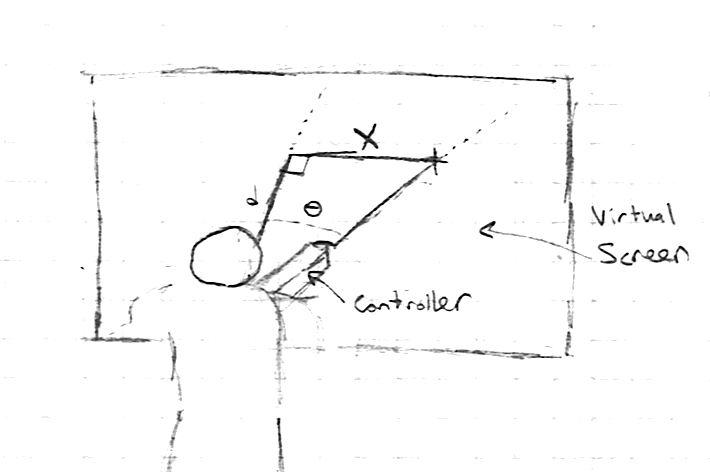 X
d
θ
Virtual
Screen
Controller